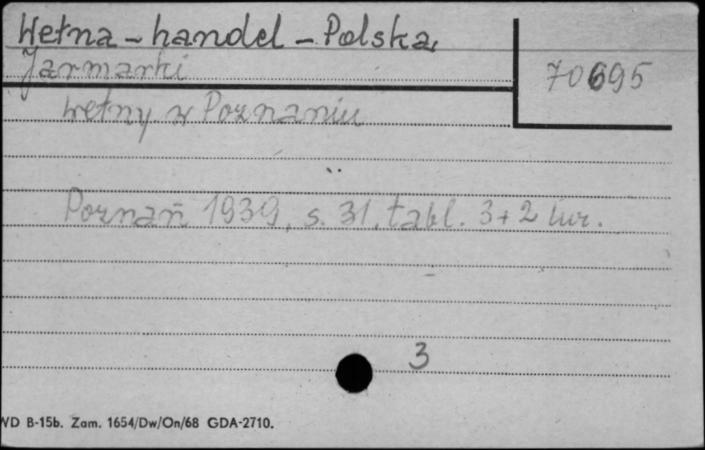 Wełna - handel - Polska,
Jarmarki
70695
wełny w Poznaniu
Poznań 1939, s. 31, tabl. 3 + 2 lur.
3
WD B-15b. Zam. 1654/Dw/On/68 GDA-2710.